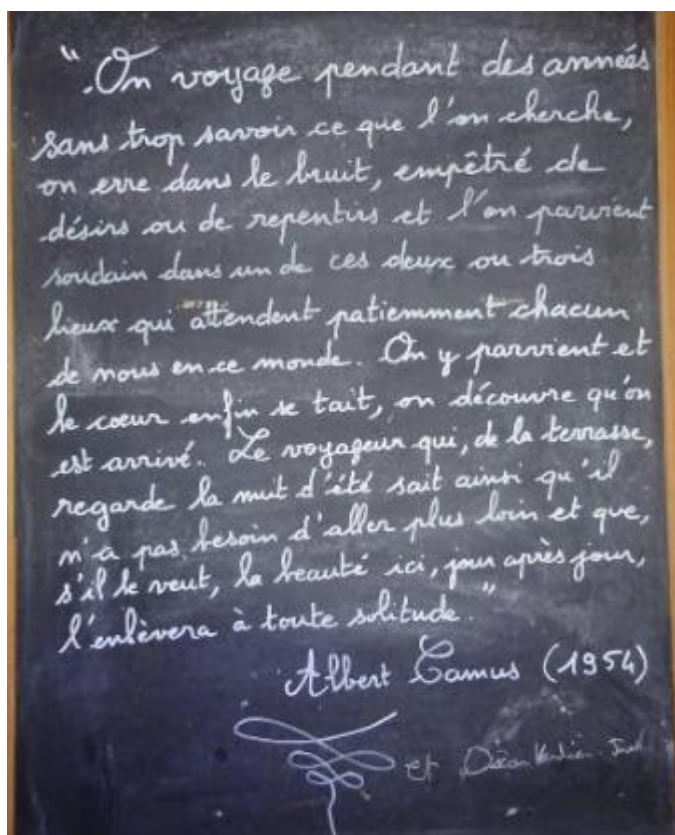 "On voyage pendant des années
sans trop savoir ce que l'on cherche,
on erre dans le bruit, empêtré de
désirs ou de repentirs et l'on parvient
soudain dans un de ces deux ou trois
lieux qui attendent patiemment chacun
de nous en ce monde. On y parvient et
le coeur enfin se tait, on découvre qu'on
est arrivé. Le voyageur qui, de la terrasse,
regarde la nuit d'été sait ainsi qu'il
n'a pas besoin d'aller plus loin et que,
s'il le veut, la beauté ici, jour après jour,
l'enlèvera à toute solitude."
Albert Camus (1954)
et